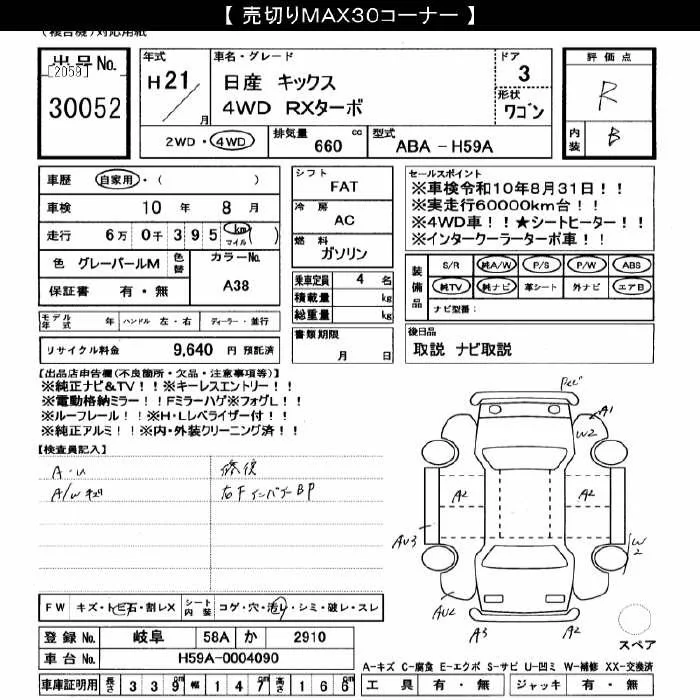 【 売切りMAX30コーナー 】
(複合機)対応用紙
出品No.
[2059]
30052
年式
H21 / 月
車名・グレード
日産 キックス
4WD RXターボ
ドア
3
形状
ワゴン
評価点
R
内装 B
2WD・4WD
排気量 660 cc
型式 ABA-H59A
車歴 自家用・( )
車検 10 年 8 月
走行 6万 0千 3 9 5 km マイル ( )
色 グレーパールM 色替
カラーNo.
A38
保証書 有・無
シフト
FAT
冷房
AC
燃料
ガソリン
乗車定員 4 名
積載量 kg
総重量 kg
セールスポイント
※車検令和10年8月31日!!
※実走行60000km台!!
※4WD車!!★シートヒーター!!
※インタークーラーターボ車!!
装備品
S/R 純A/W P/S P/W ABS
純TV 純ナビ 革シート 外ナビ エアB
ナビ型番:
モデル年式 年 ハンドル 左・右 ディーラー・並行
リサイクル料金 9,640 円 預託済
書類期限
月 日
後日品
取説 ナビ取説
【出品店申告欄(不良箇所・欠品・注意事項等)】
※純正ナビ&TV!!※キーレスエントリー!!
※電動格納ミラー!!Fミラーハゲ※フォグL!!
※ルーフレール!!※H・Lレベライザー付!!
※純正アルミ!!※内・外装クリーニング済!!
【検査員記入】
A・U
A/W キズ
修復
右FインパネBP
A1
W2
A2
A2
AU3
W2
AU2
A3
A2
スペア
FW キズ・トビ石・割レX シート内装 コゲ・穴・汚レ・シミ・破レ・スレ
登録No. 岐阜 58A か 2910
車台No. H59A-0004090
車庫証明用 長さ 3 3 9 cm 幅 1 4 7 cm 高さ 1 6 6 cm
A-キズ C-腐食 E-エクボ S-サビ U-凹ミ W-補修 XX-交換済
工具 有・無 ジャッキ 有・無